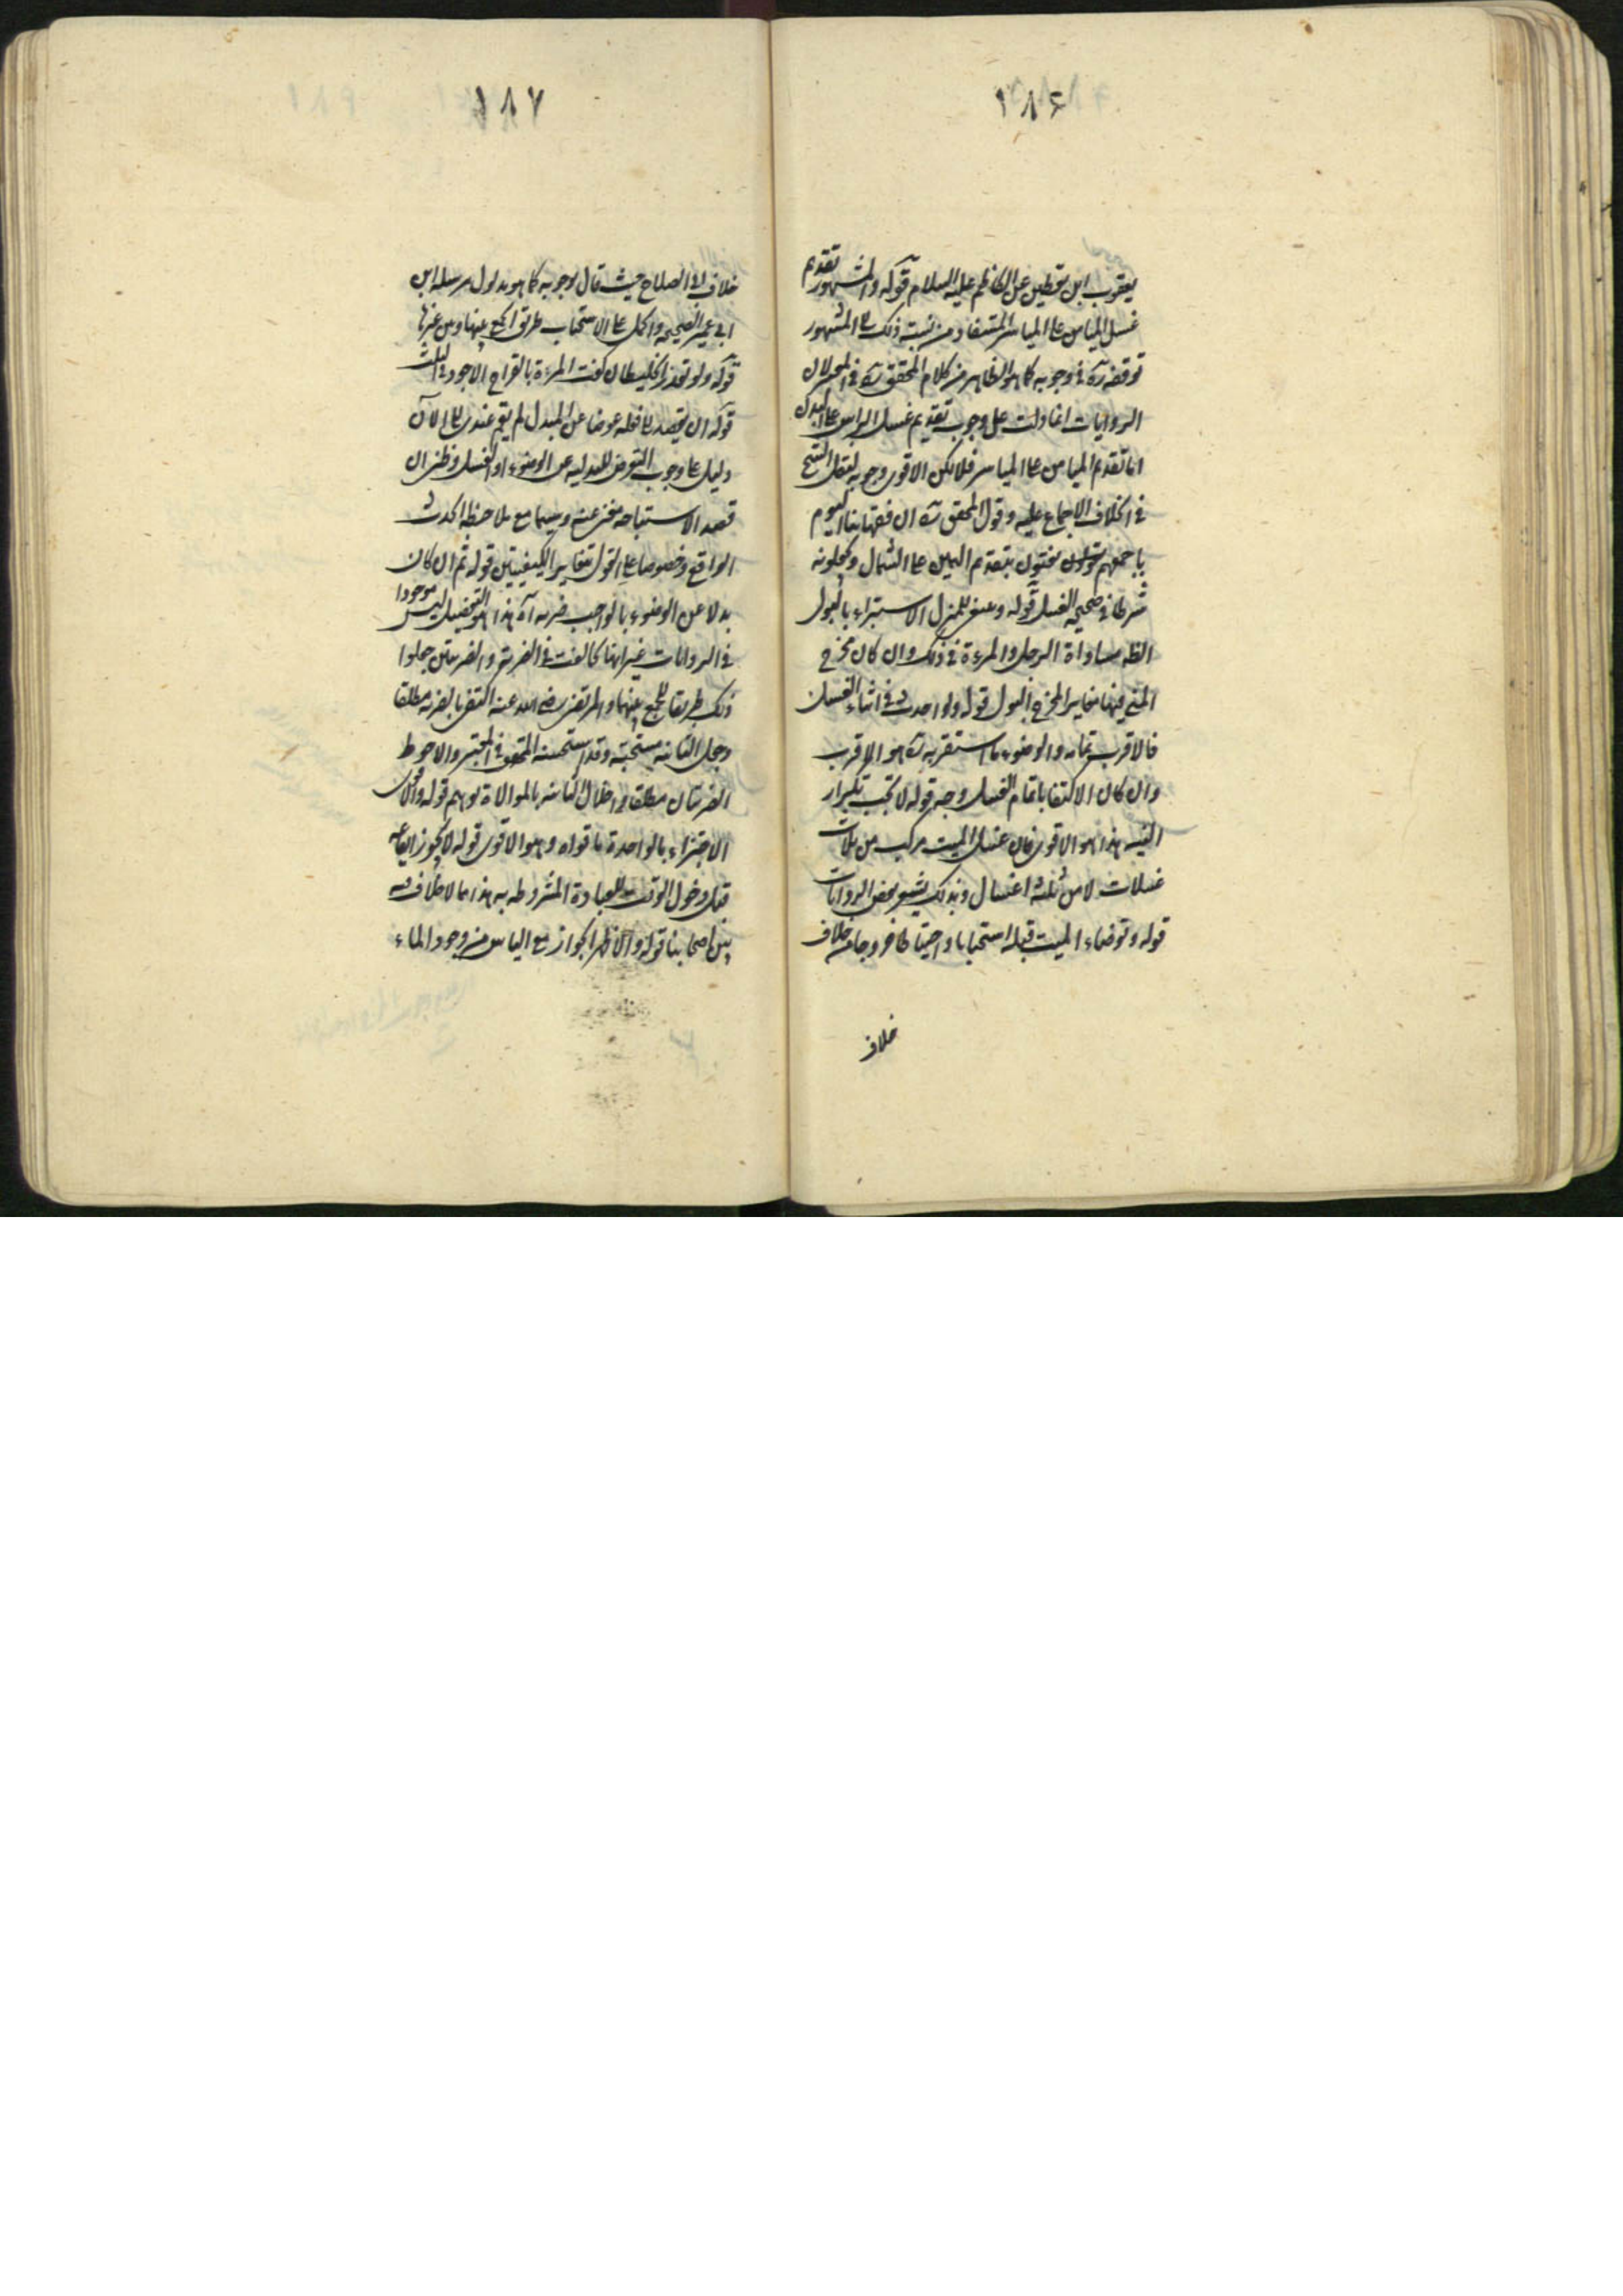 ١٨٦
يعقوب ابن يقطين عن الكاظم عليه السلام قوله والمشهور تقديم
غسل الميامن على المياسر المستفاد من نسبة ذلك الى المشهور
توقفه ره في وجوبه كما هو الظاهر من كلام المحقق ره في المعتبر لان
الروايات انما دلت على وجوب تقديم غسل الراس على البدن
اما تقديم الميامن على المياسر فلا لكن الاقوى وجوبه لنقل الشيخ
في الخلاف الاجماع عليه وقول المحقق ره ان فقهائنا اليوم
باجمعهم يفتون بتقديم اليمين على الشمال ويجعلونه
شرطا في صحة الغسل قوله وعندي للمنزل الاستبراء بالبول
الظه مساواة الرجل والمرءة في ذلك وان كان مخرج
المني فيها مغاير المخرج البول قوله ولو احدث في اثناء الغسل
فالاقرب تمامه والوضوء ما استقربه ره هو الاقرب
وان كان الاكتفا باتمام الغسل وجه قوله لا يجب تكرار
النية هذا هو الاقوى فان غسل الميت مركب من ثلاث
غسلات لا من ثلثة اغسال وبذلك يشعر بعض الروايات
قوله وتوضاء الميت قبله استحبابا واحتياطا خروجا من خلاف
خلاف
١٨٧
خلاف ابي الصلاح حيث قال بوجوبه كما هو مدلول مرسله ابن
ابي عمير الصحيحه والحمل على الاستحباب طريق الجمع بينها وبين غيرها
قوله ولو تعذر الخليطان كفت المرة بالقراح الاجود الثلث
قوله ان يقصد بما فعله عوضا عن المبدل لم يقم عندي الى الآن
دليل على وجوب التعرض للبدليه عن الوضوء او الغسل وظني ان
قصد الاستباحه مغن عنه وسيما مع ملاحظه الحدث
الواقع وخصوصا على القول بتغاير الكيفيتين قوله ثم ان كان
بدلا عن الوضوء بالواجب ضربه آه هذا هو التفصيل ليس موجودا
في الروايات غير انها لما كانت في الضربة والضربتين جعلوا
ذلك طريقا للجمع بينهما والمرتضى رضي الله عنه اكتفى بالضربه مطلقا
وجعل الثانيه مستحبة وقد استحسنه المحقق في المعتبر والاحوط
الضربتان مطلقا واخلال الثانيه بالموالاة توهم قوله والاقوى
الاجتزاء بالواحدة ما قواه وهو الاقوى قوله لا يجوز ايقاعه
قبل دخول الوقت للعبادة المشروطه به هذا مما لا خلاف فيه
بين اصحابنا قوله والاظهر الجواز مع الياس من وجود الماء